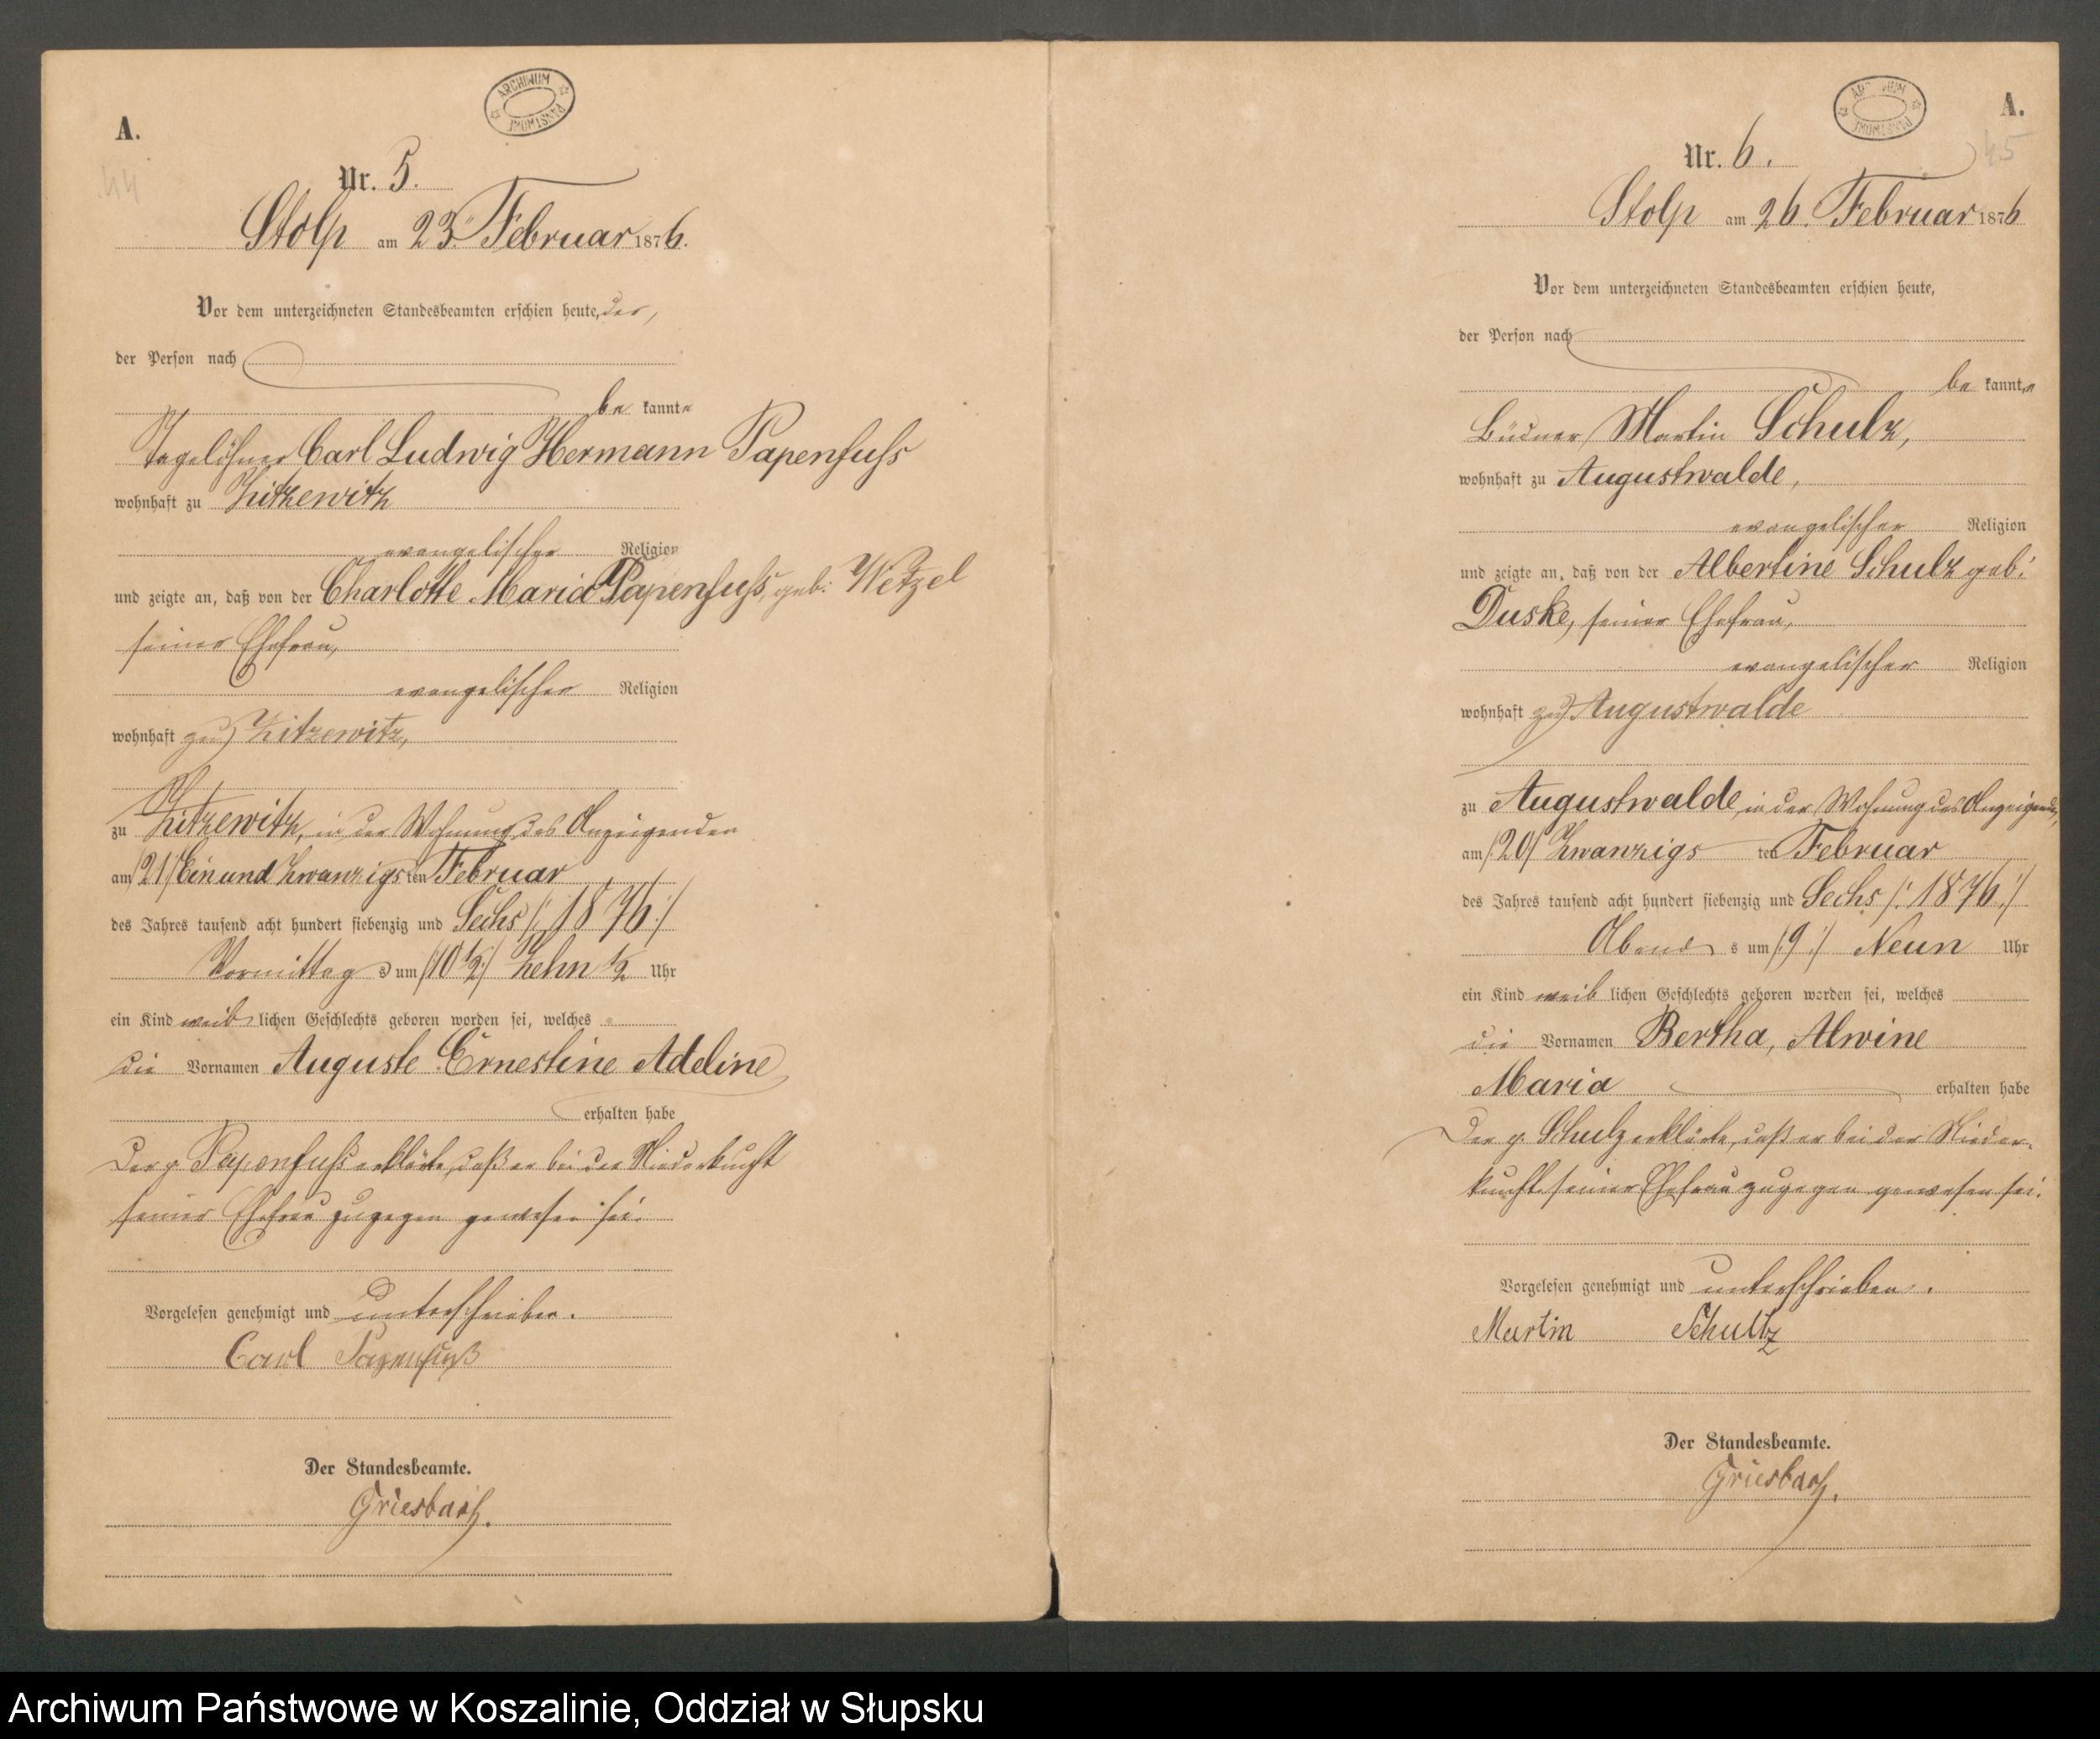 A.
ARCHIWUM PAŃSTWOWE
44
Nr. 5.
Stolp am 23. Februar 1876.
Vor dem unterzeichneten Standesbeamten erschien heute, der,
der Person nach
be kannte
Tagelöhner Carl Ludwig Hermann Papenfuss
wohnhaft zu Zitzewitz
evangelischer Religion
und zeigte an, daß von der Charlotte Maria Papenfuss, geb: Wetzel
seiner Ehefrau,
evangelischer Religion
wohnhaft zu Zitzewitz,
zu Zitzewitz, in der Wohnung des Anzeigenden
am /21/ Ein und zwanzigsten Februar
des Jahres tausend acht hundert siebenzig und Sechs /: 1876 :/
Vormittag s um /10 1/2/ Zehn 1/2 Uhr
ein Kind weib lichen Geschlechts geboren worden sei, welches
die Vornamen Auguste Ernestine Adeline
erhalten habe
Der p. Papenfuß erklärte, daß er bei der Niederkunft
seiner Ehefrau zugegen gewesen sei.
Vorgelesen genehmigt und unterschrieben.
Carl Papenfuß
Der Standesbeamte.
Griesbach.
A.
ARCHIWUM PAŃSTWOWE
45
Nr. 6.
Stolp am 26. Februar 1876
Vor dem unterzeichneten Standesbeamten erschien heute,
der Person nach
be kannt,e
Büdner Martin Schulz,
wohnhaft zu Augustwalde,
evangelischer Religion
und zeigte an, daß von der Albertine Schulz geb:
Duske, seiner Ehefrau,
evangelischer Religion
wohnhaft zu Augustwalde
zu Augustwalde, in der Wohnung des Anzeigenden,
am /:20/ Zwanzigs ten Februar
des Jahres tausend acht hundert siebenzig und Sechs /: 1876 :/
Abend s um /:9:/ Neun Uhr
ein Kind weib lichen Geschlechts geboren worden sei, welches
die Vornamen Bertha, Alwine
Maria erhalten habe
Der p. Schulz erklärte, daß er bei der Nieder-
kunft seiner Ehefrau zugegen gewesen sei.
Vorgelesen genehmigt und unterschrieben.
Martin Schultz
Der Standesbeamte.
Griesbach.
Archiwum Państwowe w Koszalinie, Oddział w Słupsku